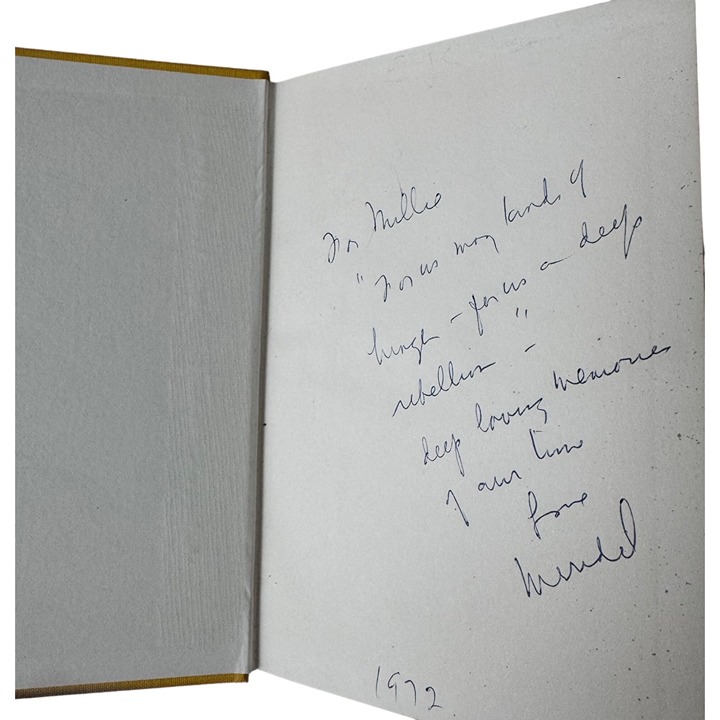 For Millie
"For us many kinds of
hunger - for us a deep
rebellion" -
deep loving memories
of our time
Love
Mendel
1972